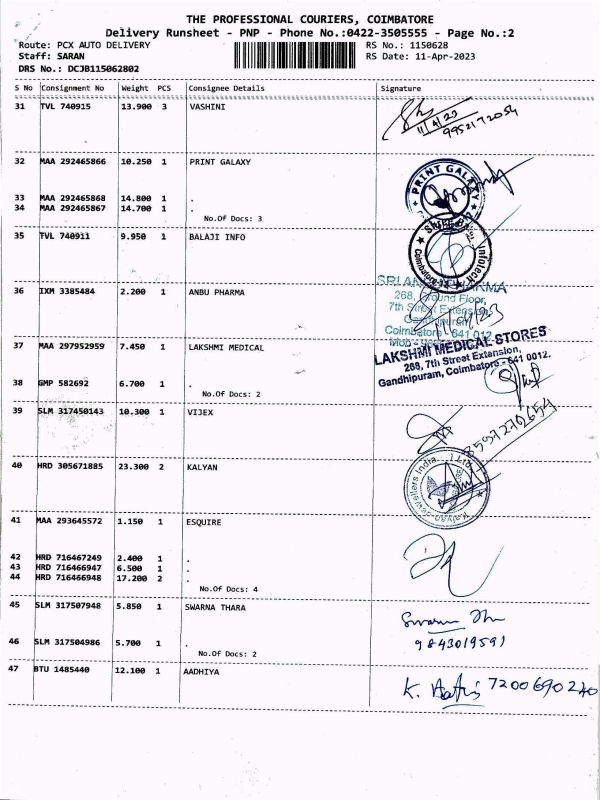 THE PROFESSIONAL COURIERS, COIMBATORE
Delivery Runsheet - PNP - Phone No.:0422-3505555 - Page No.:2
Route: PCX AUTO DELIVERY RS No.: 1150628
Staff: SARAN RS Date: 11-Apr-2023
DRS No.: DCJB115062802
S No Consignment No Weight PCS Consignee Details Signature
31 TVL 740915 13.900 3 VASHINI
11/4/23
9952172054
32 MAA 292465866 10.250 1 PRINT GALAXY
PRINT GALAXY
33 MAA 292465868 14.800 1 .
34 MAA 292465867 14.700 1 .
No.Of Docs: 3
35 TVL 740911 9.950 1 BALAJI INFO
Infotech
Coimbatore
36 IXM 3385484 2.200 1 ANBU PHARMA
268, Ground Floor,
7th Street Extension,
Gandhipuram
Coimbatore - 641 012
37 MAA 297952959 7.450 1 LAKSHMI MEDICAL
LAKSHMI MEDICAL STORES
268, 7th Street Extension,
Gandhipuram, Coimbatore - 641 0012.
38 GMP 582692 6.700 1 .
No.Of Docs: 2
39 SLM 317450143 10.300 1 VIJEX
40 HRD 305671885 23.300 2 KALYAN
Kalyan Jewellers India
41 MAA 293645572 1.150 1 ESQUIRE
42 HRD 716467249 2.400 1 .
43 HRD 716466947 6.500 1 .
44 HRD 716466948 17.200 2 .
No.Of Docs: 4
45 SLM 317507948 5.850 1 SWARNA THARA
9843019591
46 SLM 317504986 5.700 1 .
No.Of Docs: 2
47 BTU 1485440 12.100 1 AADHIYA
K. 7200690240